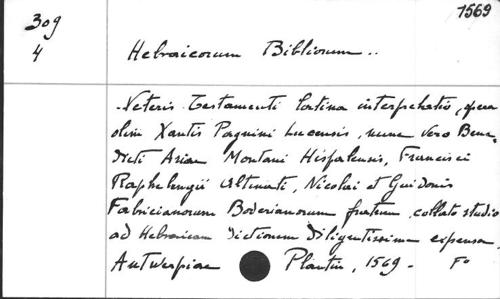 1569
309
4
Hebraicorum Bibliorum..
Veteris Testamenti latina interpretatio, opera
olim Xantis Pagnini Lucensis, nunc vero Bene-
dicti Ariae Montani Hispalensis, Francisci
Raphelengii Alnetani, Nicolai et Guidonis
Fabricianorum Boderianorum fratrum collato studio
ad Hebraicam dictionem diligentissime expensa,
Antwerpiae Plantin, 1569 - Fº